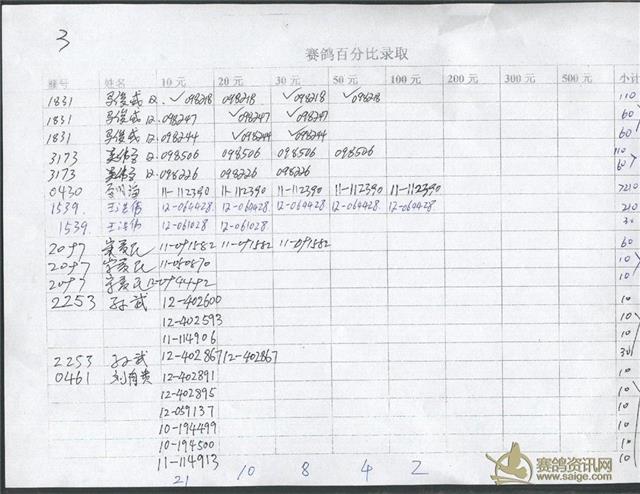 3
赛鸽百分比录取
棚号 姓名 10元 20元 30元 50元 100元 200元 300元 500元 小计
1831 12 ✓098218 098218 ✓098218 ✓098218 110
1831 12 098247 ✓098247 ✓098247 60
1831 12 098244 ✓098244 ✓098244 60
3173 12 098506 098506 098506 098506 110
3173 12 098226 098226 098226 60
0430 11-112390 11-112390 11-112390 11-112390 11-112390 210
1539. 12-064428 12-064428 12-064428 12-064428 12-064428 210
1539. 12-061028 12-061028 30
2097 11-091582 11-091582 11-091582 60
2097 11-050870 10
2097 12-094492 10
2253 孙斌 12-402600 10
12-402593 10
11-114906 10
2253 孙斌 12-402867 12-402867 30
0461 刘有贵 12-402891 10
12-402895 10
12-059137 10
10-194499 10
10-194500 10
11-114913 10
21 10 8 4 2
赛鸽资讯网
www.saige.com